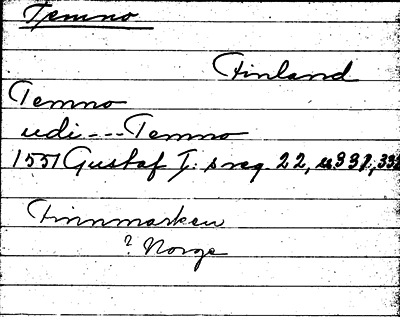 Temno
Finland
Temno
udi---Temno
1551 Gustaf I: s reg. 22, s 331, 332
Finnmarken
? Norge